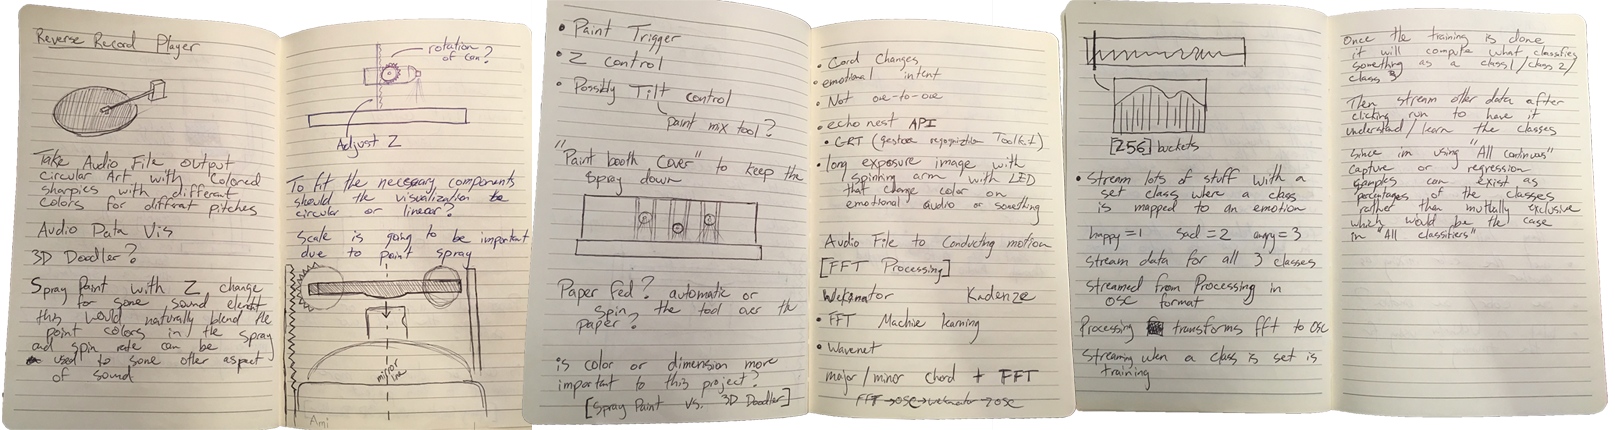 Reverse Record Player
Take Audio File output
circular Art with colored
sharpies with different
colors for diffrent pitches
Audio Data Vis
3D Doodler?
Spray Paint with Z change
for some sound elemt
this would naturally blend the
paint colors in the spray
and spin rate can be
used to some other aspect
of sound
rotation
of can?
Adjust Z
To fit the necessary components
should the visualization be
circular or linear?
Scale is going to be important
due to paint spray
mirror
line
"Ami
• Paint Trigger
• Z control
• Possibly Tilt control
paint mix tool?
"Paint booth cover" to keep the
spray down
Paper Fed? automatic or
spin the tool over the
paper?
is color or dimension more
important to this project?
[Spray Paint vs. 3D Doodler]
• Cord Changes
• emotional intent
• Not one-to-one
• echo nest API
• GRT (gesture recognization Toolkit)
• long exposure image with
spinning arm with LED
that change color on
emotional audio or something
Audio File to Conducting motion
[FFT Processing]
Wekenator Kadenze
• FFT Machine learning
• Wavenet
major/minor chord + FFT
FFT→OSC→wekenator→OSC
[256] buckets
• Stream lots of stuff with a
set class where a class
is mapped to an emotion
happy=1 sad=2 angry=3
stream data for all 3 classes
streamed from Processing in
OSC format
Processing transforms fft to OSC
Streaming when a class is set is
training
Once the training is done
it will compute what classifies
something as a class1/class2/
class3
Then stream other data after
clicking run to have it
understand/learn the classes
Since im using "All continuos"
capture or regression
samples can exist as
percentages of the classes
rather than mutually exclusive
which would be the case
in "All classifiers"